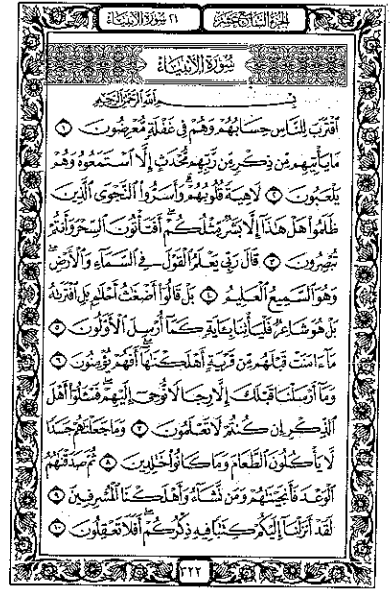 الجزء السابع عشر
٢١ سورة الأنبياء
سُورَةُ الْأَنبِيَاءِ
بِسْمِ اللَّهِ الرَّحْمَٰنِ الرَّحِيمِ
اقْتَرَبَ لِلنَّاسِ حِسَابُهُمْ وَهُمْ فِي غَفْلَةٍ مُّعْرِضُونَ ١
مَا يَأْتِيهِم مِّن ذِكْرٍ مِّن رَّبِّهِم مُّحْدَثٍ إِلَّا اسْتَمَعُوهُ وَهُمْ
يَلْعَبُونَ ٢ لَاهِيَةً قُلُوبُهُمْ وَأَسَرُّوا النَّجْوَى الَّذِينَ
ظَلَمُوا هَلْ هَٰذَا إِلَّا بَشَرٌ مِّثْلُكُمْ أَفَتَأْتُونَ السِّحْرَ وَأَنتُمْ
تُبْصِرُونَ ٣ قَالَ رَبِّي يَعْلَمُ الْقَوْلَ فِي السَّمَاءِ وَالْأَرْضِ
وَهُوَ السَّمِيعُ الْعَلِيمُ ٤ بَلْ قَالُوا أَضْغَاثُ أَحْلَامٍ بَلِ افْتَرَاهُ
بَلْ هُوَ شَاعِرٌ فَلْيَأْتِنَا بِآيَةٍ كَمَا أُرْسِلَ الْأَوَّلُونَ ٥
مَا آمَنَتْ قَبْلَهُم مِّن قَرْيَةٍ أَهْلَكْنَاهَا أَفَهُمْ يُؤْمِنُونَ ٦
وَمَا أَرْسَلْنَا قَبْلَكَ إِلَّا رِجَالًا نُّوحِي إِلَيْهِمْ فَسْـَٔلُوا أَهْلَ
الذِّكْرِ إِن كُنتُمْ لَا تَعْلَمُونَ ٧ وَمَا جَعَلْنَاهُمْ جَسَدًا
لَّا يَأْكُلُونَ الطَّعَامَ وَمَا كَانُوا خَالِدِينَ ٨ ثُمَّ صَدَقْنَاهُمُ
الْوَعْدَ فَأَنجَيْنَاهُمْ وَمَن نَّشَاءُ وَأَهْلَكْنَا الْمُسْرِفِينَ ٩
لَقَدْ أَنزَلْنَا إِلَيْكُمْ كِتَابًا فِيهِ ذِكْرُكُمْ أَفَلَا تَعْقِلُونَ ١٠
٣٢٢